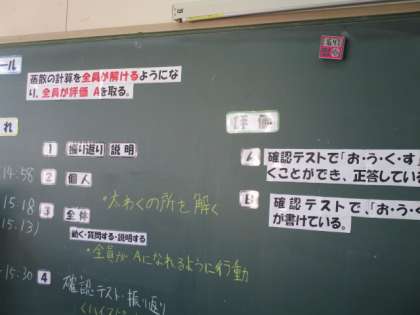 ール
函数の計算を全員が解けるようにな
り、全員が評価 Aを取る。
れ
評価
1 振り返り 説明
14:58 2 個人
・大わくの所を解く
15.18 3 全体
15.13)
動く・質問する・説明する
・全員がAになれるように行動
15.30 4 確認テスト・振り返り
A 確認テストで「お・う・く・す」
くことができ、正答している
B 確認テストで、「お・う・
が書けている。